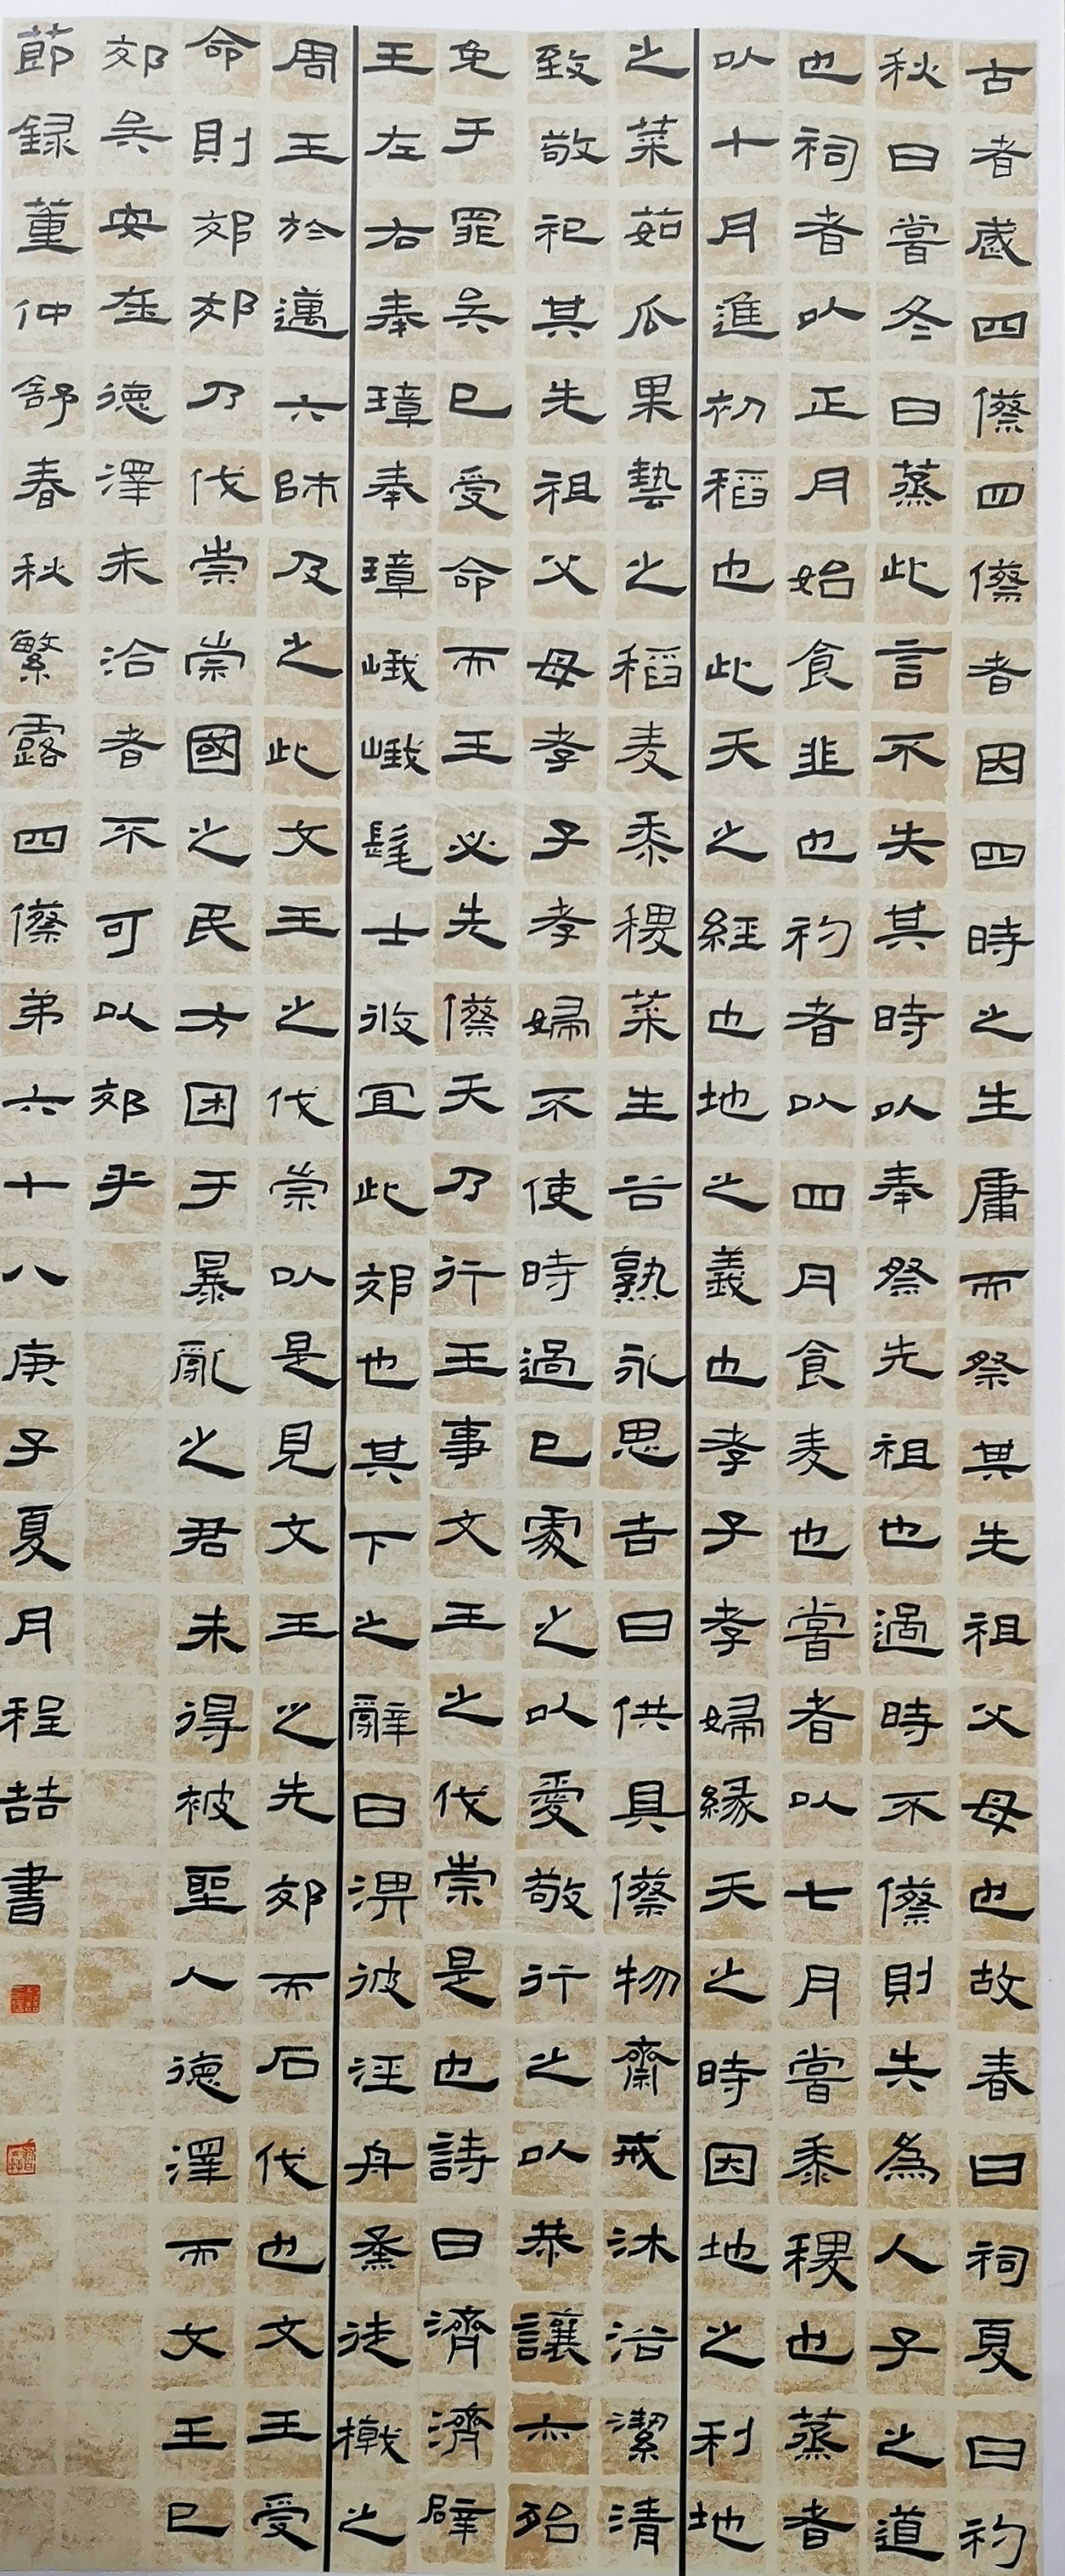 古者歲四傺四傺者因四時之生庸而祭其先祖父母也故春曰祠夏曰礿
秋曰嘗冬曰蒸此言不失其時以奉祭先祖也過時不傺則失為人子之道
也祠者以正月始食韭也礿者以四月食麦也嘗者以七月嘗黍稷也蒸者
以十月進初稻也此天之經也地之義也孝子孝婦緣天之時因地之利地
之菜茹瓜果藝之稻麦黍稷菜生谷熟永思吉日供具傺物齋戒沐浴潔清
致敬祀其先祖父母孝子孝婦不使時過已處之以愛敬行之以恭讓亦殆
免于罪矣已受命而王必先傺天乃行王事文王之伐崇是也詩曰濟濟辟
王左右奉璋奉璋峨峨髦士攸宜此郊也其下之辭曰淠彼涇舟烝徒檝之
周王於邁六師及之此文王之伐崇以是見文王之先郊而后伐也文王受
命則郊郊乃伐崇崇國之民方困于暴亂之君未得被聖人德澤而文王已
郊矣安在德澤未洽者不可以郊乎
節録董仲舒春秋繁露四傺弟六十八庚子夏月程喆書